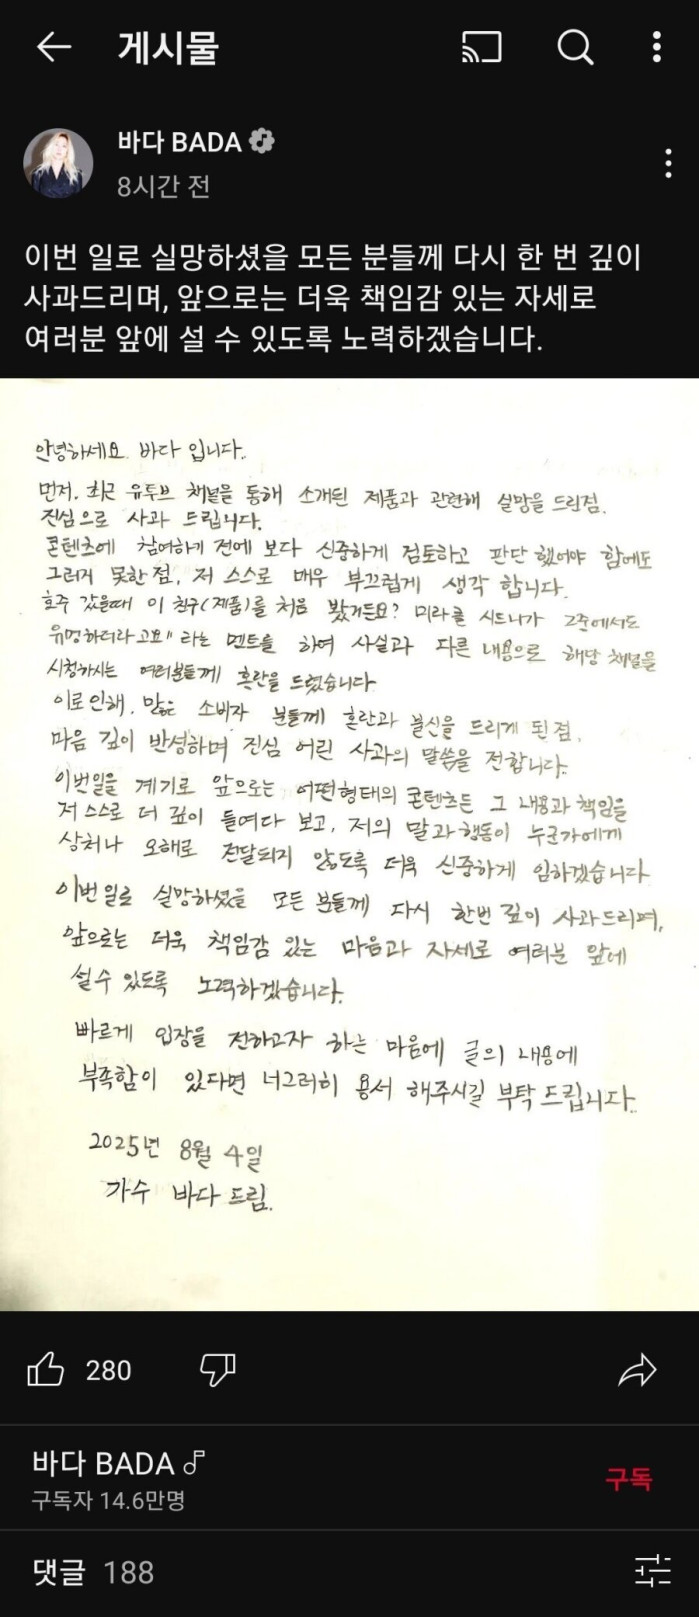 게시물
바다 BADA
8시간 전
이번 일로 실망하셨을 모든 분들께 다시 한 번 깊이
사과드리며, 앞으로는 더욱 책임감 있는 자세로
여러분 앞에 설 수 있도록 노력하겠습니다.
안녕하세요 바다 입니다.
먼저. 최근 유투브 채널을 통해 소개된 제품과 관련해 실망을 드린점.
진심으로 사과 드립니다.
콘텐츠에 참여하기 전에 보다 신중하게 검토하고 판단 했어야 함에도
그러지 못한점, 저 스스로 매우 부끄럽게 생각 합니다.
호주 갔을때 이 친구(제품)를 처음 봤거든요? 미라클 시드니가 호주에서도
유명하더라고요" 라는 멘트를 하여 사실과 다른 내용으로 해당 채널을
시청하시는 여러분들께 혼란을 드렸습니다
이로인해, 많은 소비자 분들께 혼란과 불신을 드리게 된점,
마음 깊이 반성하며 진심 어린 사과의 말씀을 전합니다.
이번일을 계기로 앞으로는 어떤형태의 콘텐츠든 그 내용과 책임을
저 스스로 더 깊이 들여다 보고, 저의 말과 행동이 누군가에게
상처나 오해로 전달되지 않도록 더욱 신중하게 임하겠습니다
이번 일로 실망하셨을 모든 분들께 다시 한번 깊이 사과드리며,
앞으로는 더욱 책임감 있는 마음과 자세로 여러분 앞에
설수 있도록 노력하겠습니다.
빠르게 입장을 전하고자 하는 마음에 글의 내용에
부족함이 있다면 너그러히 용서 해주시길 부탁 드립니다.
2025년 8월 4일
가수 바다 드림.
280
바다 BADA
구독자 14.6만명
구독
댓글 188